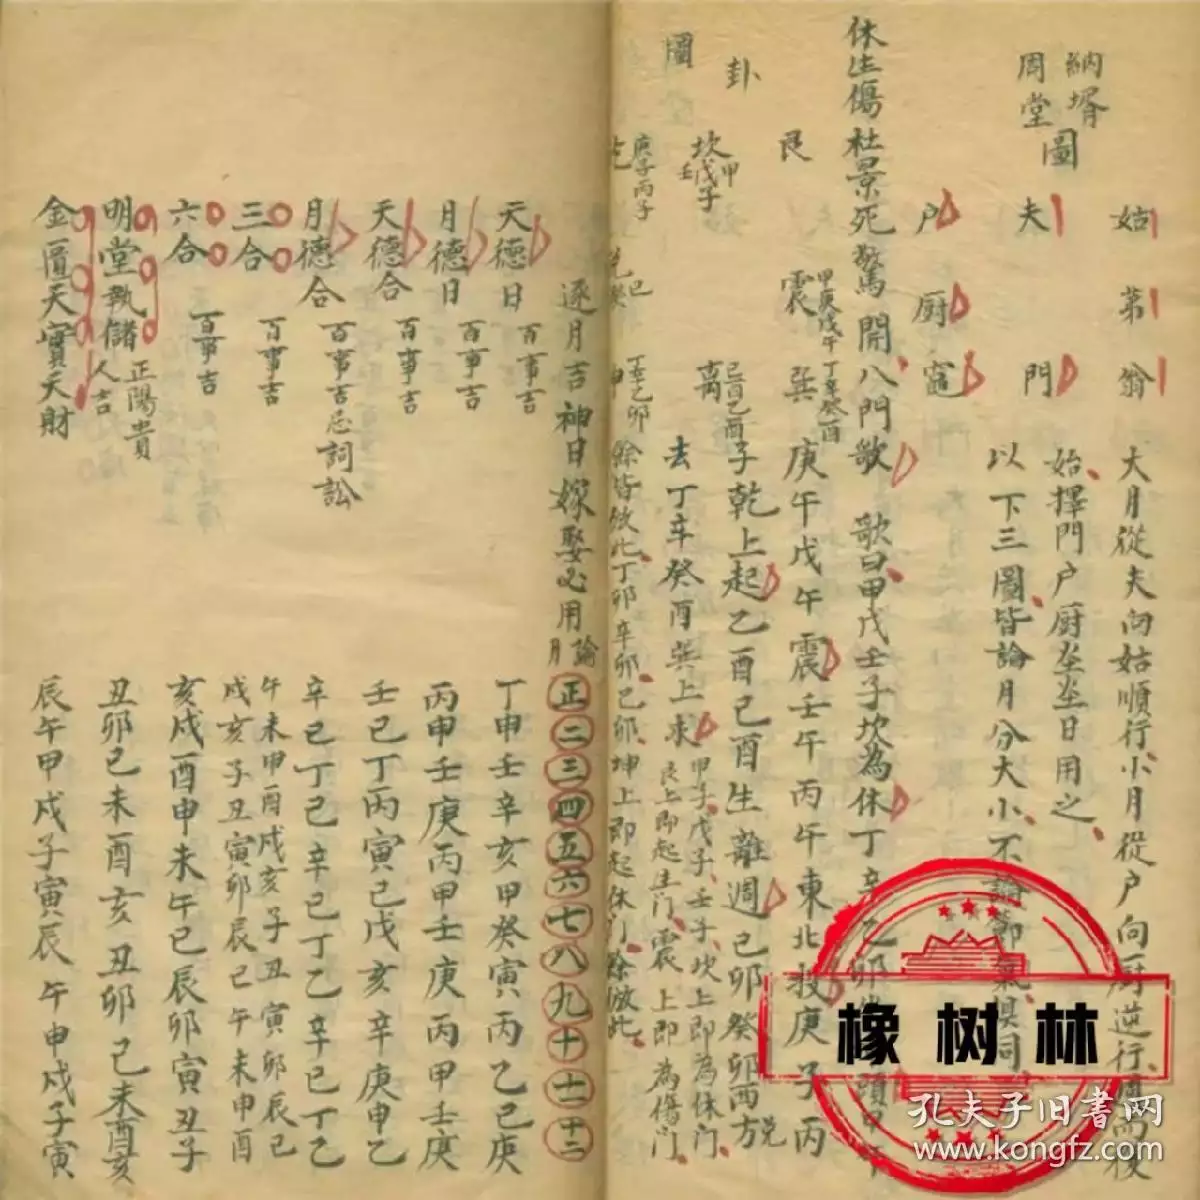 納壻
周堂
圖
姑
第
翁
夫
門
户
厨
竈
大月從夫向姑順行、小月從户向厨逆行、周而復
始、擇門户厨灶灶日用之、
以下三圖、皆論月分大小、不論節氣、俱同、
休生傷杜景死驚開、八門歌 歌曰、甲戊壬子坎為休、丁辛乙卯
庚午戊午震、壬午丙午東北投、庚子丙
子乾上起、乙酉己酉生離週、己卯癸卯西方
去、丁辛癸酉巽上求、
卦
圖
艮
震
甲庚戊午
巽
丁辛癸酉
坎
甲戊子
壬
離
己酉乙酉
庚子丙子
丁辛乙卯
甲子、戊子、壬子、坎上即為休門、
艮上即起生門、震上即為傷門、
餘皆倣此、丁卯辛卯乙卯、坤上即起休門、餘倣此、
逐月吉神日嫁娶必用 論月
正二三四五六七八九十十一十二
天德日 百事吉 丁申壬辛亥甲癸寅丙乙巳庚
月德日 百事吉 丙甲壬庚丙甲壬庚丙甲壬庚
天德合 百事吉 壬巳丁丙寅己戊亥辛庚申乙
月德合 百事吉忌詞訟 辛己丁乙辛己丁乙辛己丁乙
三合 百事吉 午未申酉戌亥子丑寅卯辰巳
戌亥子丑寅卯辰巳午未申酉
六合 百事吉 亥戌酉申未午巳辰卯寅丑子
明堂執儲 正陽貴人吉 丑卯巳未酉亥丑卯巳未酉亥
金匱天寶天財 辰午申戌子寅辰午申戌子寅
橡树林
孔夫子旧书网
www.kongfz.com